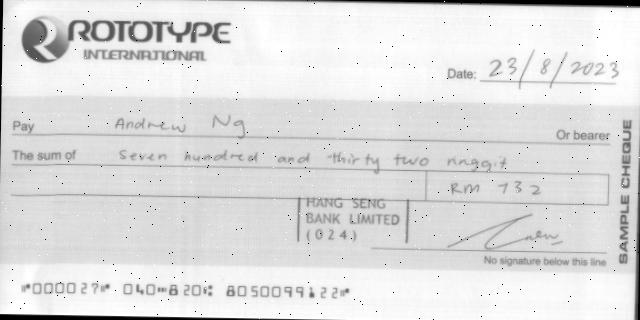 ROTOTYPE
INTERNATIONAL
Date: 23/8/2023
Pay Andrew Ng Or bearer
The sum of seven hundred and thirty two ringgit
RM 732
HANG SENG
BANK LIMITED
(024)
No signature below this line
SAMPLE CHEQUE
⑈000027⑈ 040⑉820⑆ 8050099122⑈